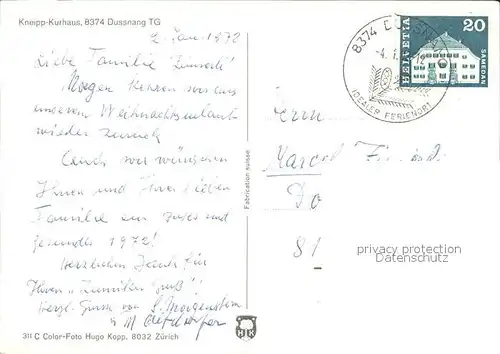 Kneipp-Kurhaus, 8374 Dussnang TG
2. Jan. 1972
Liebe Familie
Morgen kehren wir aus
unserem Weihnachtsurlaub
wieder zurück
Auch wir wünschen
Ihnen und Ihrer lieben
Familie ein gutes und
gesundes 1972!
Herzlichen Dank für
Ihren "Familien Gruß"!
Herzl. Grüsse von S. Morgenstern
311 C Color-Foto Hugo Kopp, 8032 Zürich
Fabrication suisse
HK
8374 DUSSNANG
IDEALER FERIENORT
HELVETIA
20
SAMEDAN
Herrn
Marcel
81
privacy protection
Datenschutz